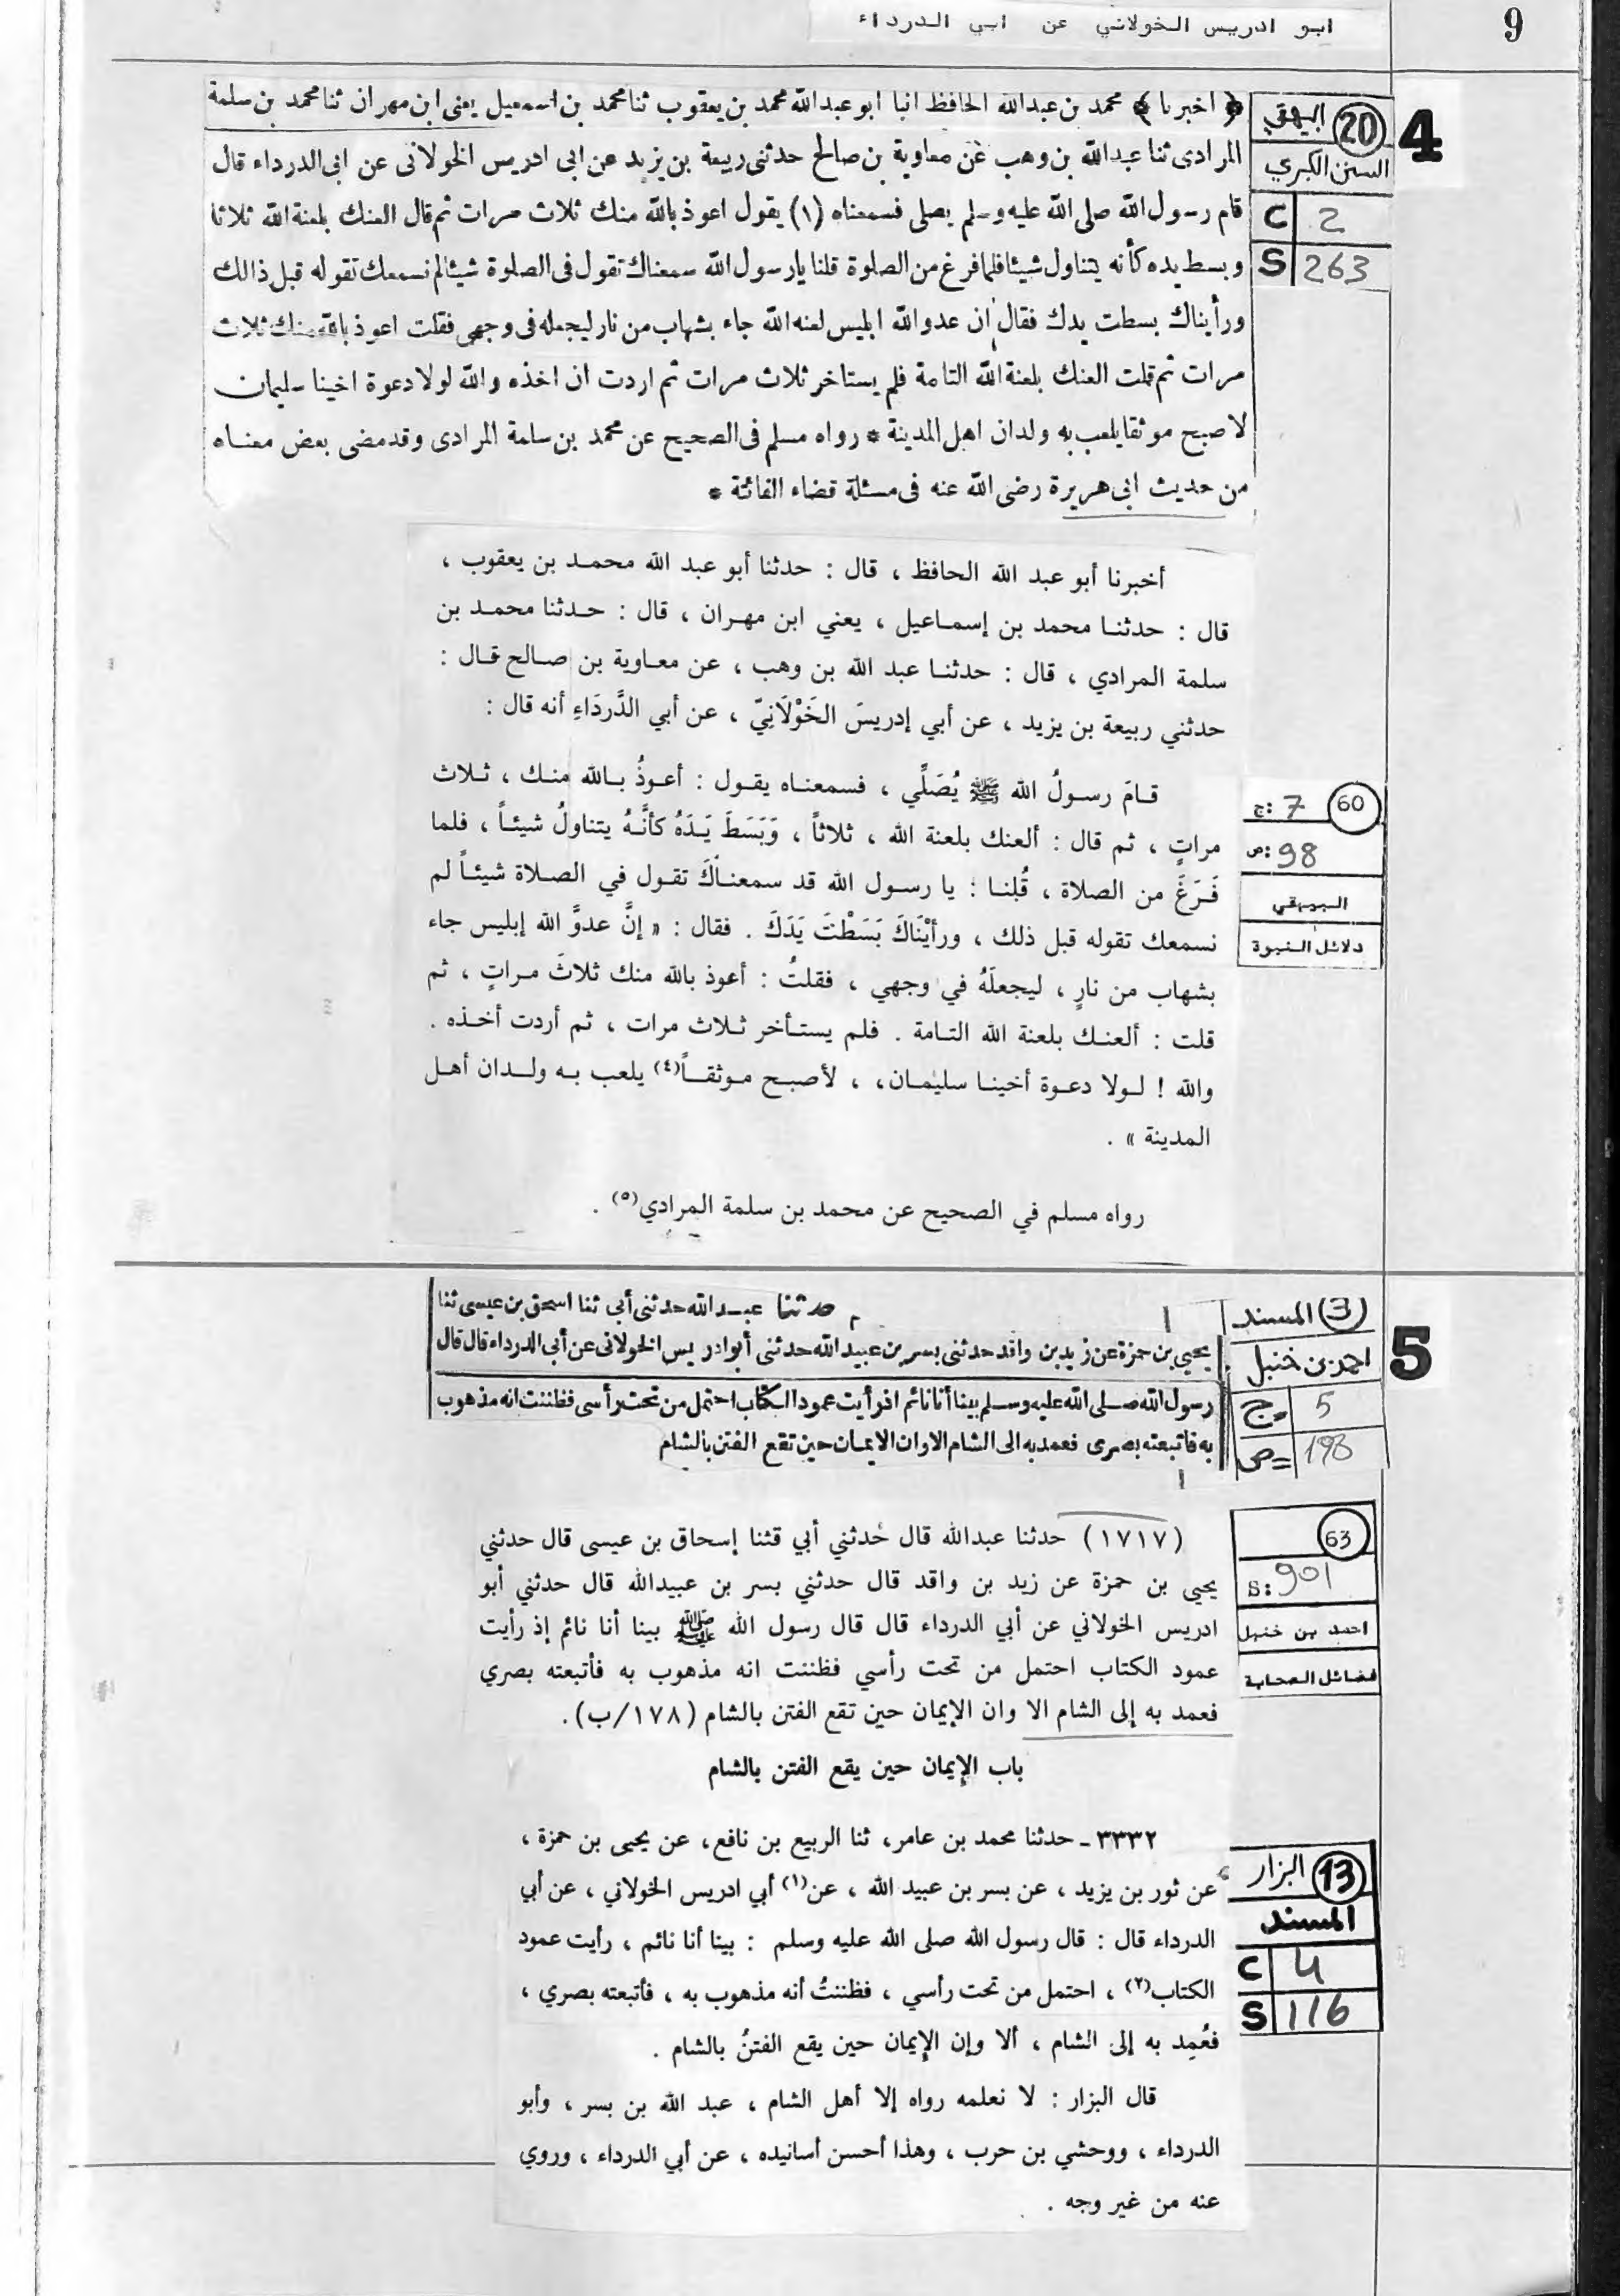 ابو ادريس الخولاني عن ابي الدرداء
9
4
(20) البيهقي
السنن الكبري
C 2
S 263
﴿ اخبرنا ﴾ محمد بن عبدالله الحافظ انبا ابو عبدالله محمد بن يعقوب ثنا محمد بن اسمعيل يعنى ابن مهران ثنا محمد بن سلمة
المرادى ثنا عبدالله بن وهب عن معاوية بن صالح حدثنى ربيعة بن يزيد عن ابى ادريس الخولانى عن ابى الدرداء قال
قام رسول الله صلى الله عليه وسلم يصلى فسمعناه (١) يقول اعوذ بالله منك ثلاث مرات ثم قال العنك بلعنة الله ثلاثا
وبسط يده كأنه يتناول شيئا فلما فرغ من الصلوة قلنا يارسول الله سمعناك تقول فى الصلوة شيئا لم نسمعك تقوله قبل ذالك
ورأيناك بسطت يدك فقال ان عدو الله ابليس لعنه الله جاء بشهاب من نار ليجعله فى وجهى فقلت اعوذ بالله منك ثلاث
مرات ثم قلت العنك بلعنة الله التامة فلم يستاخر ثلاث مرات ثم اردت ان اخذه والله لولا دعوة اخينا سليمان
لاصبح موثقا يلعب به ولدان اهل المدينة * رواه مسلم فى الصحيح عن محمد بن سلمة المرادى وقد مضى بعض معناه
من حديث ابى هريرة رضى الله عنه فى مسئلة قضاء الفائتة *
أخبرنا أبو عبد الله الحافظ ، قال : حدثنا أبو عبد الله محمد بن يعقوب ،
قال : حدثنا محمد بن إسماعيل ، يعني ابن مهران ، قال : حدثنا محمد بن
سلمة المرادي ، قال : حدثنا عبد الله بن وهب ، عن معاوية بن صالح قال :
حدثني ربيعة بن يزيد ، عن أبي إدريسَ الخَوْلَانِيّ ، عن أبي الدَّردَاءِ أنه قال :
(60) ج: 7
ص: 98
البيهقي
دلائل النبوة
قامَ رسولُ الله ﷺ يُصَلِّي ، فسمعناه يقول : أعوذُ بالله منك ، ثلاث
مراتٍ ، ثم قال : ألعنك بلعنة الله ، ثلاثاً ، وَبَسَطَ يَدَهُ كأنَّهُ يتناولُ شيئاً ، فلما
فَرَغَ من الصلاة ، قُلنا : يا رسول الله قد سمعناكَ تقول في الصلاة شيئاً لم
نسمعك تقوله قبل ذلك ، ورأيْنَاكَ بَسَطْتَ يَدَكَ . فقال : « إنَّ عدوَّ الله إبليس جاء
بشهاب من نارٍ ، ليجعلَهُ في وجهي ، فقلتُ : أعوذ بالله منك ثلاثَ مراتٍ ، ثم
قلت : ألعنك بلعنة الله التامة . فلم يستأخر ثلاث مرات ، ثم أردت أخذه .
والله ! لولا دعوة أخينا سليمان، ، لأصبح موثقاً(٤) يلعب به ولدان أهل
المدينة » .
رواه مسلم في الصحيح عن محمد بن سلمة المرادي(٥) .
5
(3) المسند
احمد بن حنبل
ج= 5
ص= 198
حدثنا عبد الله حدثنى أبي ثنا اسحق بن عيسى ثنا
يحيى بن حمزة عن زيد بن واقد حدثنى بسر بن عبيد الله حدثنى أبو ادريس الخولانى عن أبى الدرداء قال قال
رسول الله صلى الله عليه وسلم بينا أنا نائم اذ رأيت عمود الكتاب احتمل من تحت رأسى فظننت انه مذهوب
به فاتبعته بصرى فعمد به الى الشام الا وان الايمان حين تقع الفتن بالشام
(63)
S: 901
احمد بن حنبل
فضائل الصحابة
(١٧١٧) حدثنا عبدالله قال حدثني أبي قثنا إسحاق بن عيسى قال حدثني
يحيى بن حمزة عن زيد بن واقد قال حدثني بسر بن عبيدالله قال حدثني أبو
ادريس الخولاني عن أبي الدرداء قال قال رسول الله ﷺ بينا أنا نائم إذ رأيت
عمود الكتاب احتمل من تحت رأسي فظننت انه مذهوب به فأتبعته بصري
فعمد به إلى الشام الا وان الإيمان حين تقع الفتن بالشام (١٧٨/ب).
باب الإيمان حين يقع الفتن بالشام
(13) البزار
المسند
C 4
S 116
٣٣٣٢ ـ حدثنا محمد بن عامر، ثنا الربيع بن نافع، عن يحيى بن حمزة ،
عن ثور بن يزيد ، عن بسر بن عبيد الله ، عن(١) أبي ادريس الخولاني ، عن أبي
الدرداء قال : قال رسول الله صلى الله عليه وسلم : بينا أنا نائم ، رأيت عمود
الكتاب(٢) ، احتمل من تحت رأسي ، فظننتُ أنه مذهوب به ، فأتبعته بصري ،
فعُمِد به إلى الشام ، ألا وإن الإيمان حين يقع الفتنُ بالشام .
قال البزار : لا نعلمه رواه إلا أهل الشام ، عبد الله بن بسر ، وأبو
الدرداء ، ووحشي بن حرب ، وهذا أحسن أسانيده ، عن أبي الدرداء ، وروي
عنه من غير وجه .